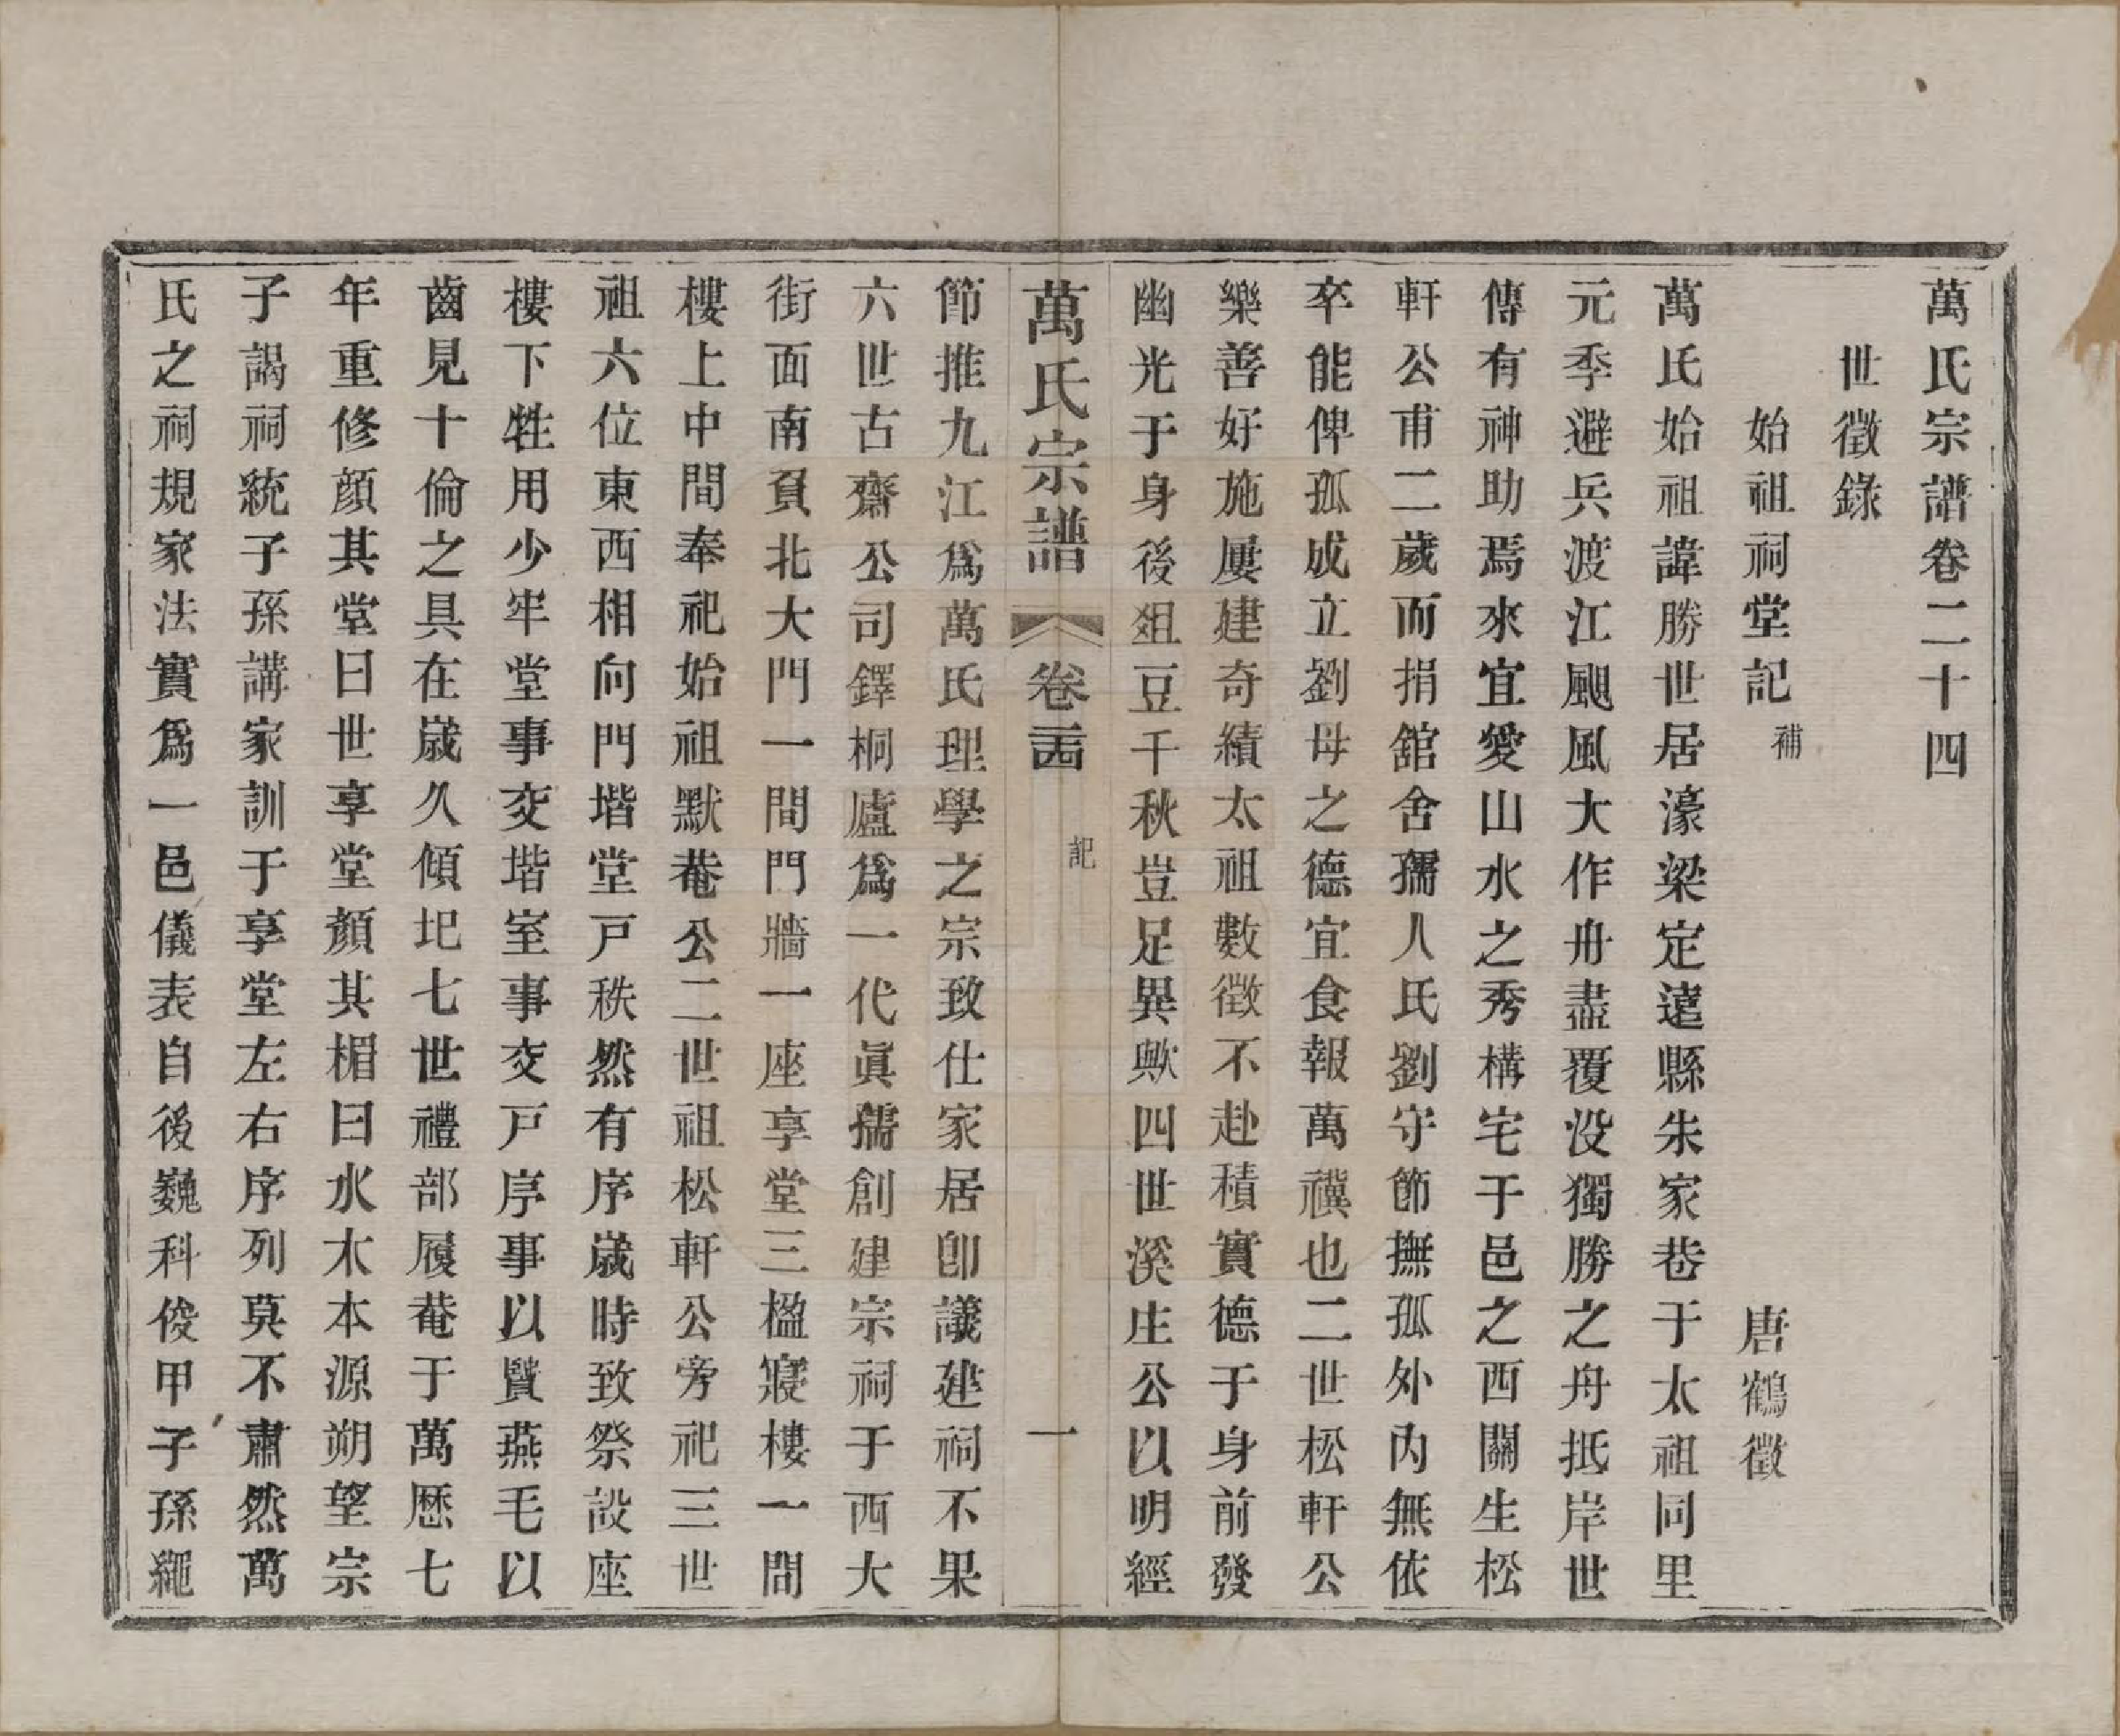 萬氏宗譜卷二十四
世徵錄
始祖祠堂記補　唐鶴徵
萬氏始祖諱勝世居濠梁定遠縣朱家巷于太祖同里
元季避兵渡江颶風大作舟盡覆没獨勝之舟抵岸世
傳有神助焉來宜愛山水之秀構宅于邑之西關生松
軒公甫二歲而捐舘舍孺人氏劉守節撫孤外內無依
卒能俾孤成立劉母之德宜食報萬禩也二世松軒公
樂善好施屢建奇績太祖數徵不赴積實德于身前發
幽光于身後俎豆千秋豈足異歟四世溪庄公以明經
萬氏宗譜　卷二十四　記　一
節推九江爲萬氏理學之宗致仕家居卽議建祠不果
六世古齋公司鐸桐廬爲一代眞儒創建宗祠于西大
街面南負北大門一間門牆一座享堂三楹寢樓一間
樓上中間奉祀始祖默菴公二世祖松軒公旁祀三世
祖六位東西相向門堦堂戸秩然有序歲時致祭設座
樓下牲用少牢堂事交堦室事交戸序事以賢燕毛以
齒見十倫之具在歲久傾圯七世禮部履菴于萬厯七
年重修顏其堂曰世享堂顏其楣曰水木本源朔望宗
子謁祠統子孫講家訓于享堂左右序列莫不肅然萬
氏之祠規家法實爲一邑儀表自後巍科俊甲子孫繩